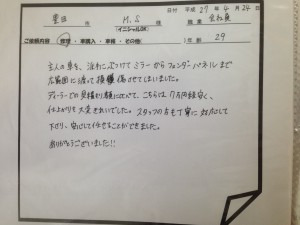 日付 平成 27年 6月 24日
豊田 市 M.S 様 職業 会社員
(イニシャルOK)
ご依頼内容 修理・車購入・車検・その他( ) 年齢 29
主人の車を、泥わにぶつけてミラーからフェンダーパネルまで
広範囲に渡って損傷させてしまいました。
ディーラーでの見積もり額に比べて、こちらは7万円程安く、
仕上がりも大変きれいでした。スタッフの方も丁寧に対応して
下さり、安心して任せることができました。
ありがとうございました!!